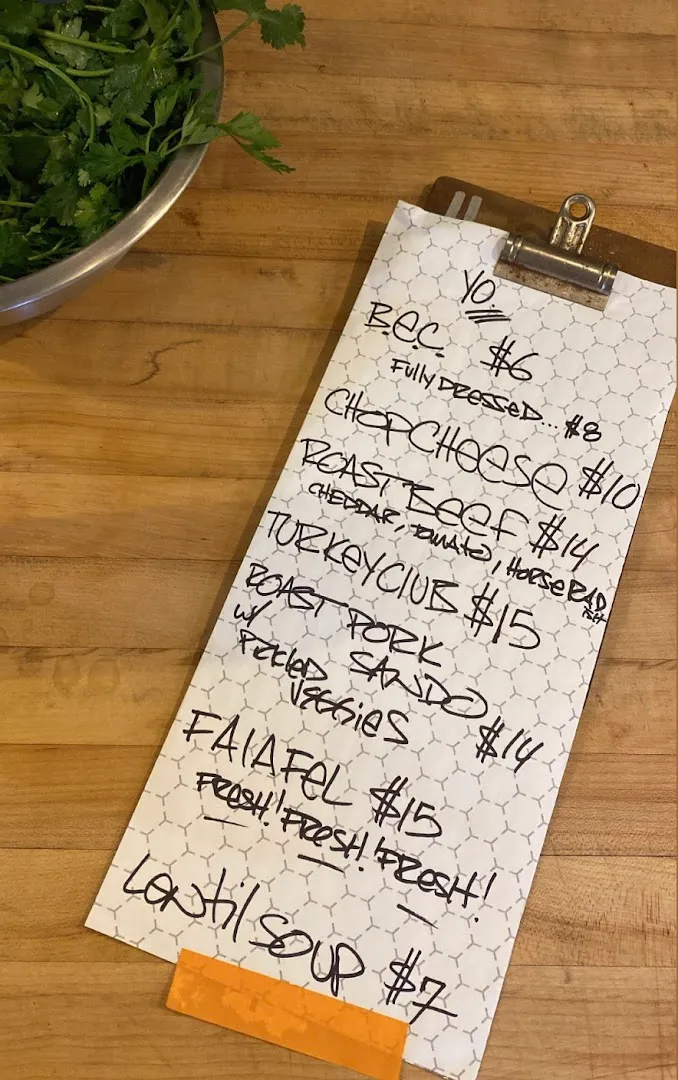 YO.
B.E.C. $6
FULLY DRESSED... $8
CHOPCHEESE $10
ROAST BEEF $14
CHEDDAR, TOMATO, HORSERAD
ISH
TURKEY CLUB $15
ROAST PORK
W/ SANDO
PICKLED
VEGGIES $14
FALAFEL $15
FRESH! FRESH! FRESH!
Lentil SOUP $7